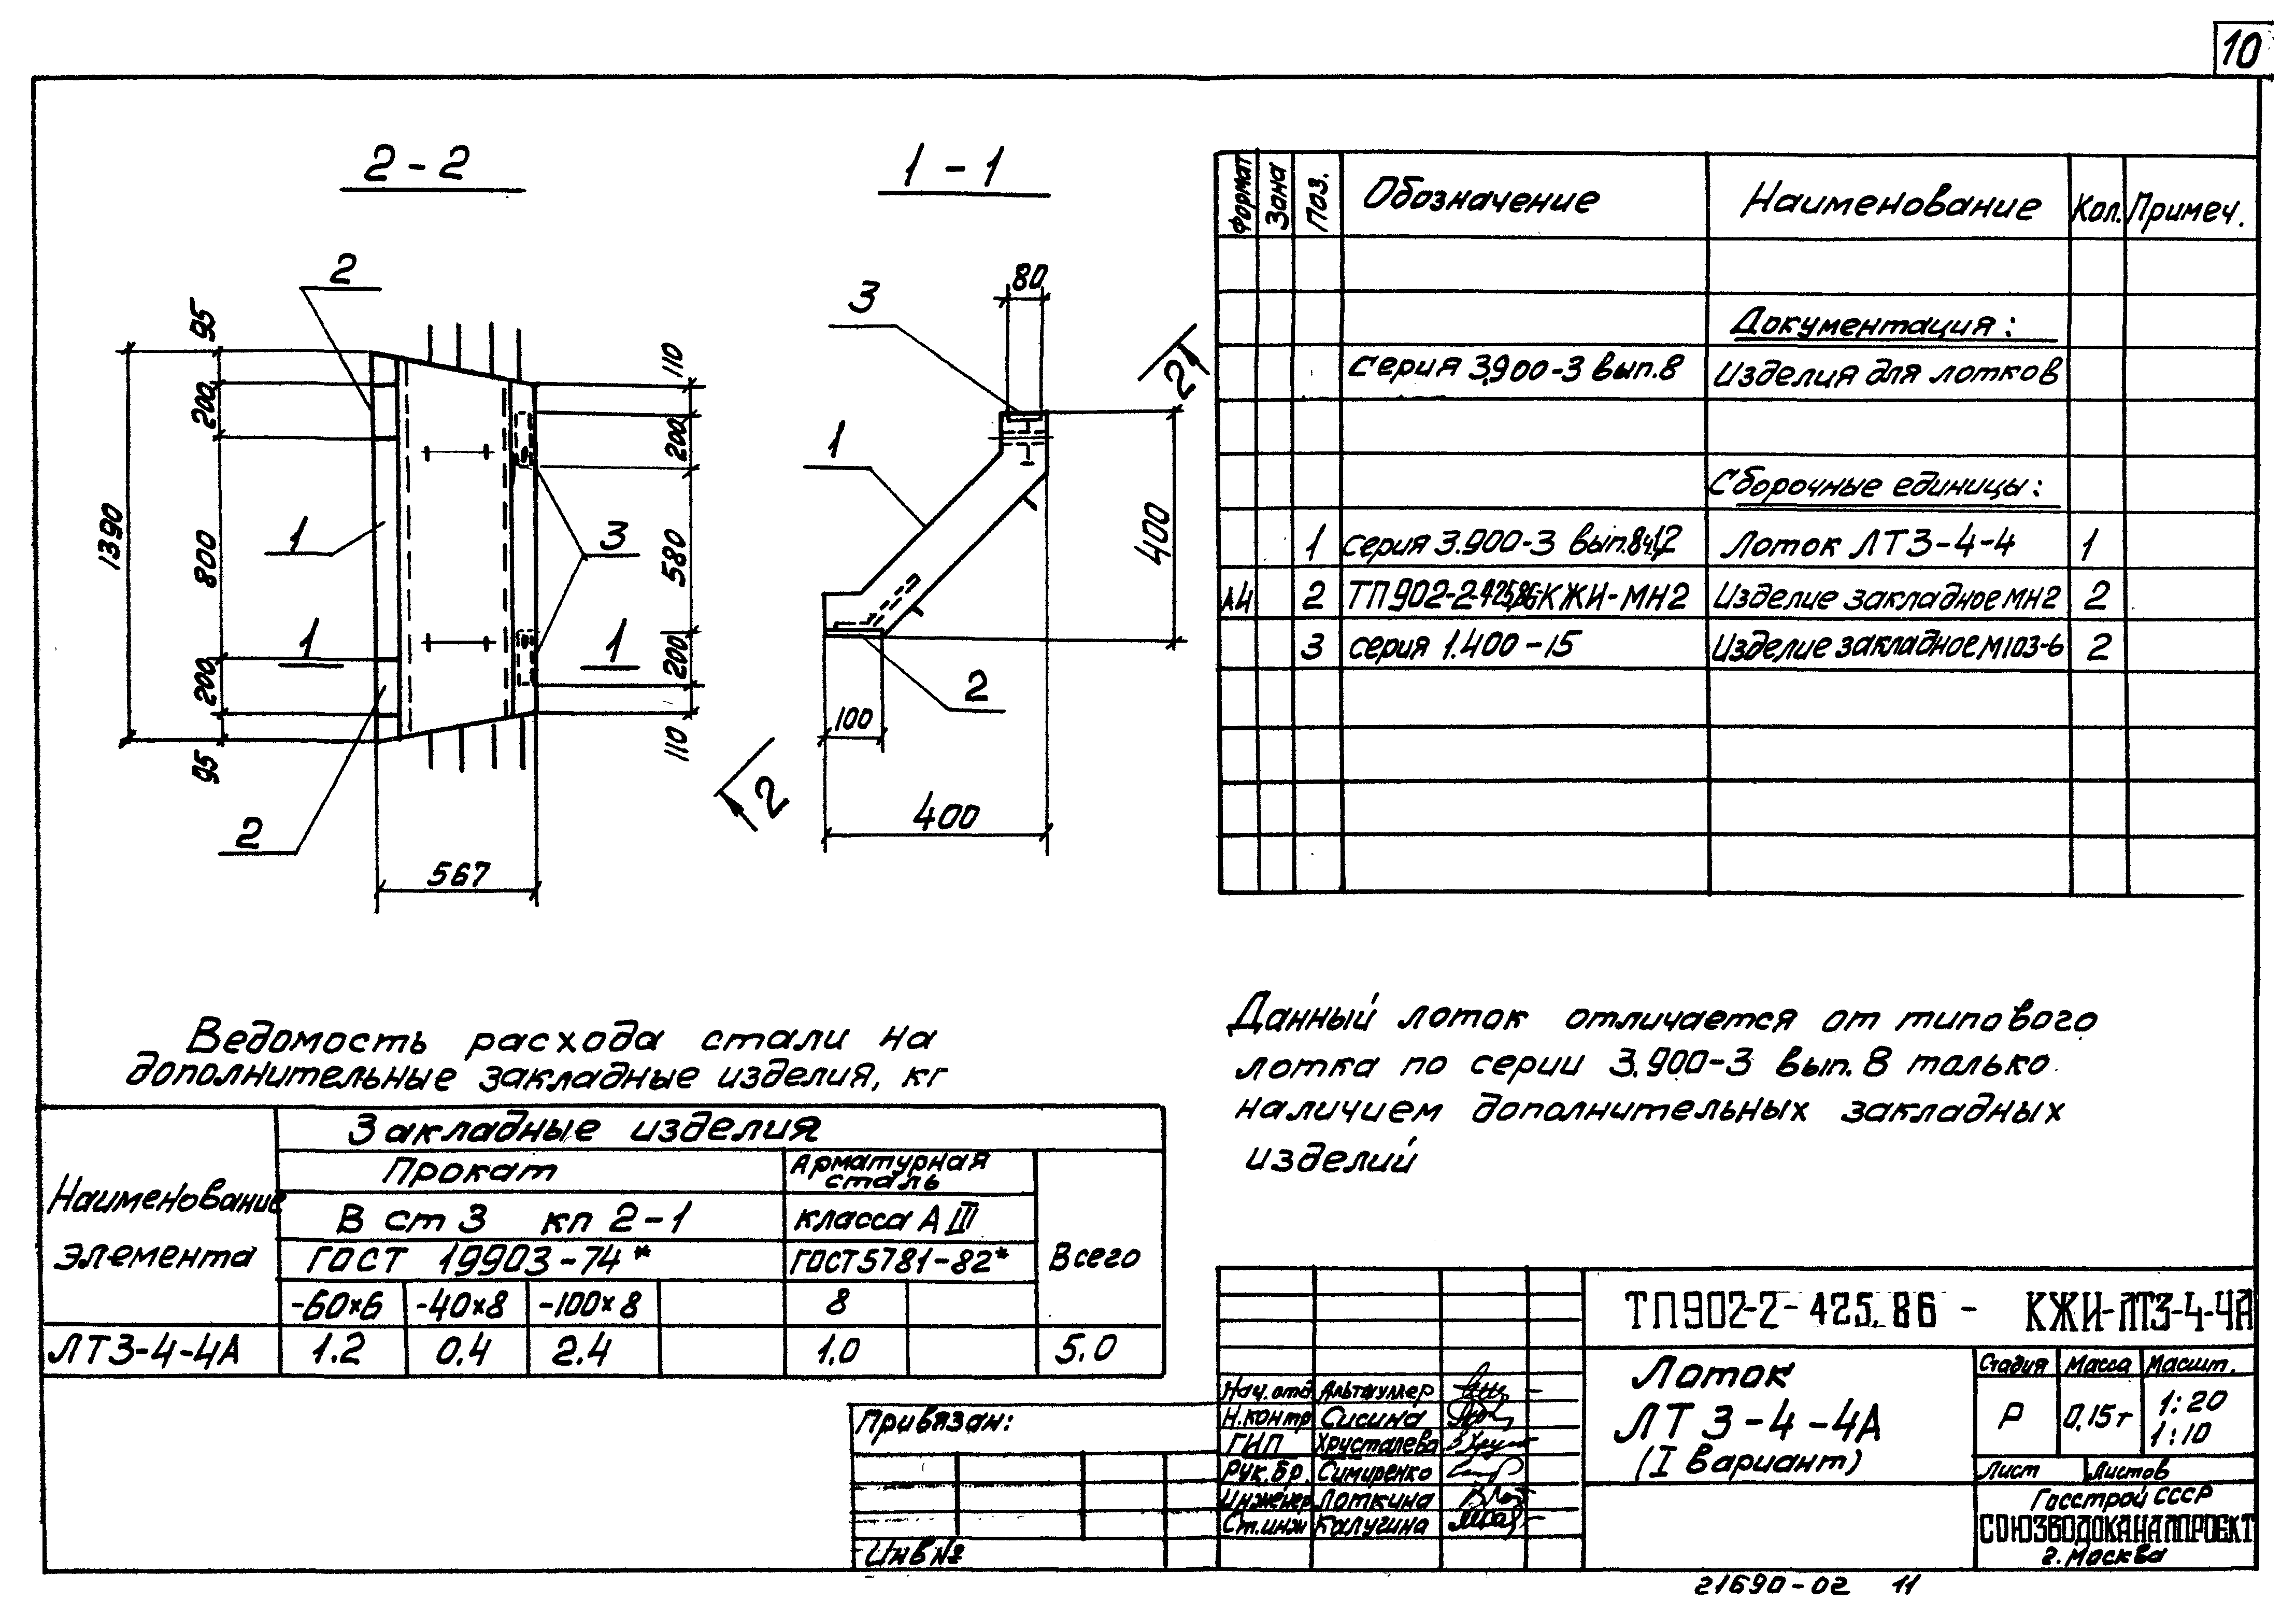 10
2-2
1-1
2
95
200
800
200
95
1390
1
1
1
2
567
110
200
580
200
110
3
80
3
2
1
400
100
2
2
400
Формат Зона Поз. Обозначение Наименование Кол. Примеч.
Документация:
серия 3.900-3 вып.8 Изделия для лотков
Сборочные единицы:
1 серия 3.900-3 вып.8ч.1,2 Лоток ЛТ3-4-4 1
А4 2 ТП902-2-425.86-КЖИ-МН2 Изделие закладное МН2 2
3 серия 1.400-15 Изделие закладное М103-6 2
Ведомость расхода стали на
дополнительные закладные изделия, кг
Наименование элемента
Закладные изделия
Прокат
Арматурная сталь
В ст 3 кп 2-1
класса АIII
ГОСТ 19903-74*
ГОСТ 5781-82*
Всего
-60×6 -40×8 -100×8 8
ЛТ3-4-4А 1.2 0.4 2.4 1.0 5.0
Данный лоток отличается от типового
лотка по серии 3.900-3 вып.8 только
наличием дополнительных закладных
изделий
Привязан:
Инв №
Нач.отд. Альтшуллер
Н.контр Сисина
ГИП Хрусталева
Рук.бр. Симиренко
Инженер Лоткина
Ст.инж Калугина
ТП902-2-425.86 - КЖИ-ЛТ3-4-4А
Лоток
ЛТ 3-4-4А
(I вариант)
Стадия Масса Масшт.
Р 0,15т 1:20
1:10
Лист Листов
Госстрой СССР
СОЮЗВОДОКАНАЛПРОЕКТ
г. Москва
21690-02 11